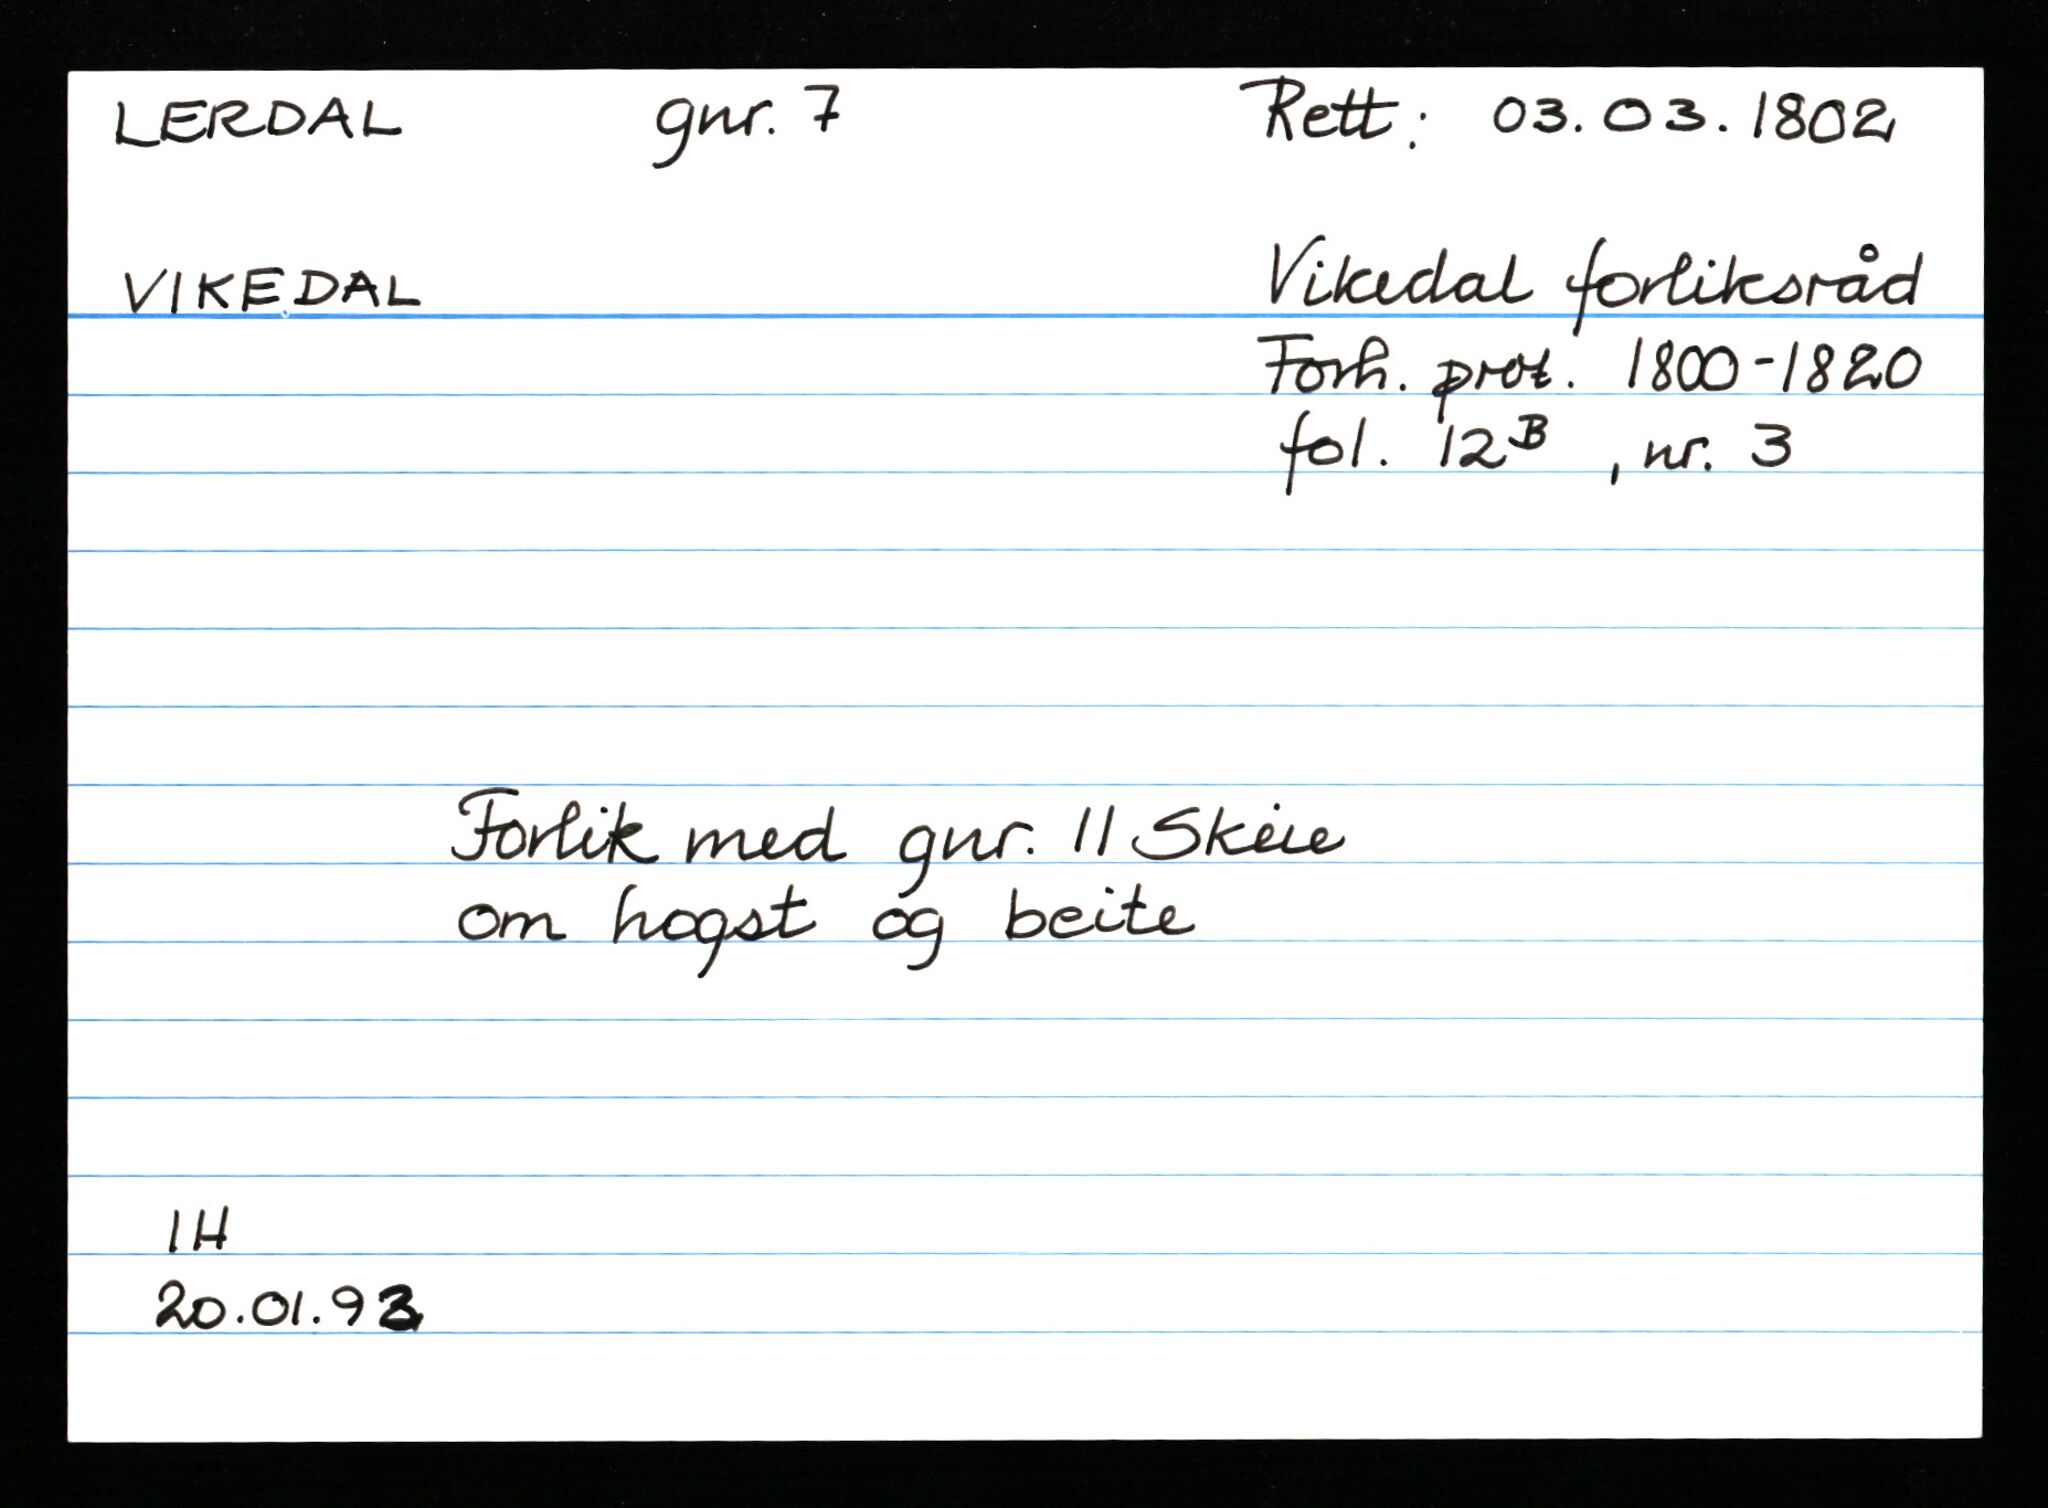 LERDAL gnr. 7 Rett: 03.03.1802
VIKEDAL Vikedal forliksråd
Forh. prot. 1800-1820
fol. 12B, nr. 3
Forlik med gnr. 11 Skeie
om hogst og beite
IH
20.01.93